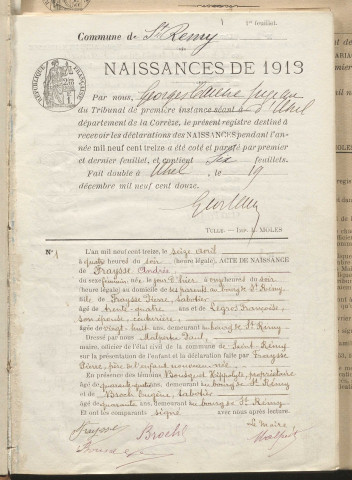 1er feuillet.
Commune de St Remy
NAISSANCES DE 1913
RÉPUBLIQUE FRANÇAISE
Par nous, Georges
du Tribunal de première instance séant à d'Ussel
département de la Corrèze, le présent registre destiné à
recevoir les déclarations des NAISSANCES pendant l'an-
née mil neuf cent treize a été coté et paraphé par premier
et dernier feuillet, et contient six feuillets.
Fait double à Ussel, le 19
décembre mil neuf cent douze.
TULLE. — IMP. MOLES
No 1 L'an mil neuf cent treize, le seize avril
à quatre heures du soir (heure légale) ACTE DE NAISSANCE
de Fraysse Andrée,
du sexe féminin, née le jour d'hier à onze heures du soir
(heure légale) au domicile de ses parents au bourg de St Rémy,
fille de Fraysse Pierre, sabotier
âgé de trente quatre ans et de Legros Françoise,
son épouse, couturière,
âgée de vingt huit ans, demeurant au bourg de St Rémy
Dressé par nous Malpertu Paul,
maire, officier de l'état civil de la commune de Saint-Rémy
sur la présentation de l'enfant et la déclaration faite par Fraysse
Pierre, père de l'enfant nouveau-née.
En présence des témoins Bousquet Hippolyte, propriétaire
âgé de ans, demeurant au bourg de St Rémy
et Broch Eugène, sabotier
âgé de quarante ans, demeurant au bourg de St Rémy
Et ont les comparants signé avec nous après lecture.
Fraysse Broch Le Maire